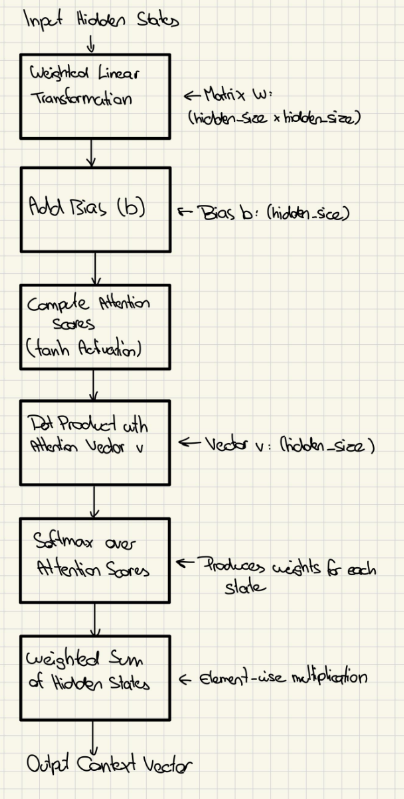 Input Hidden States
Weighted Linear
Transformation
← Matrix W:
(hidden_size x hidden_size)
Add Bias (b)
← Bias b: (hidden_size)
Compute Attention
Scores
(tanh Activation)
Dot Product with
Attention Vector v
← Vector v: (hidden_size)
Softmax over
Attention Scores
← Produces weights for each
state
Weighted Sum
of Hidden States
← Element-wise multiplication
Output Context Vector